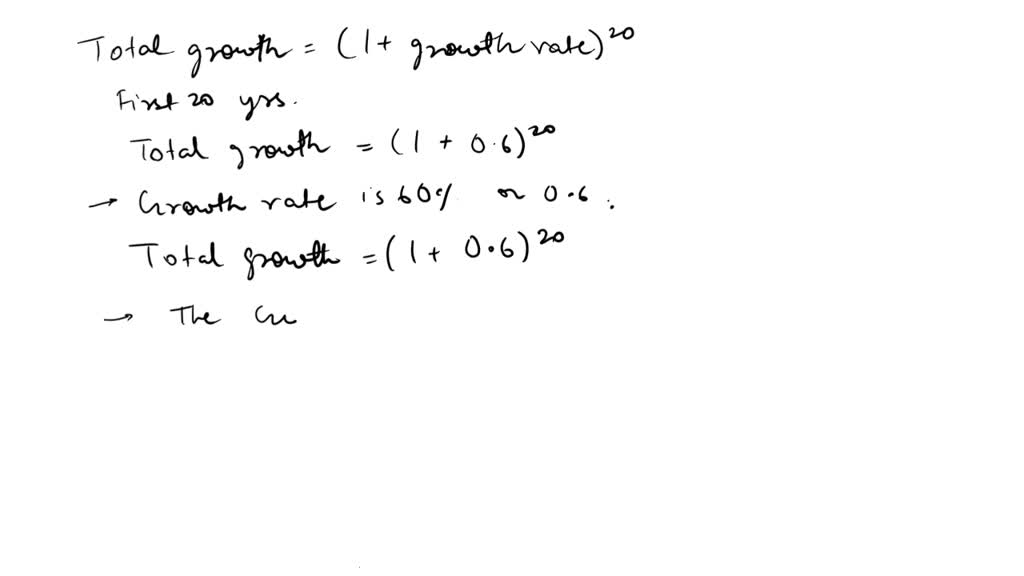 Total growth = (1 + growth rate)^20
First 20 yrs.
Total growth = (1 + 0.6)^20
→ Growth rate is 60% or 0.6.
Total growth = (1 + 0.6)^20
→ The Cu